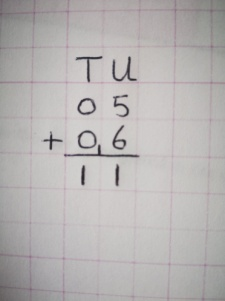 T U
0 5
+ 0, 6
1 1